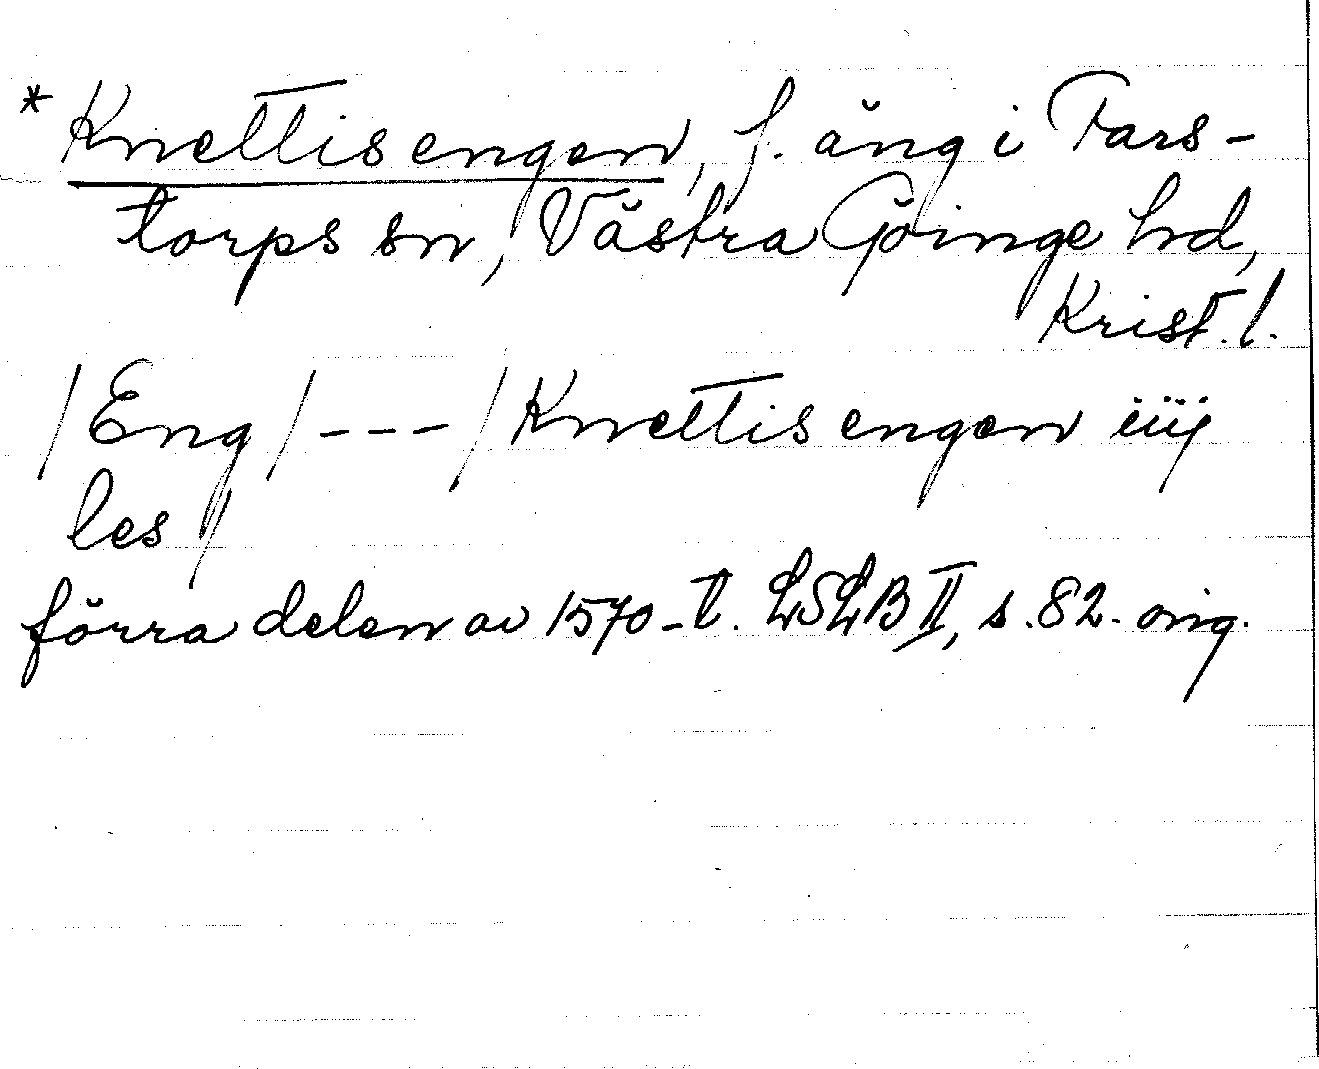 * Knettis engen, f. äng i Fars-
torps sn, Västra Göinge hd,
Krist. l.
/Eng/ --- /Knettis engen iiij
les/
förra delen av 1570-t. LSLB II, s. 82. orig.